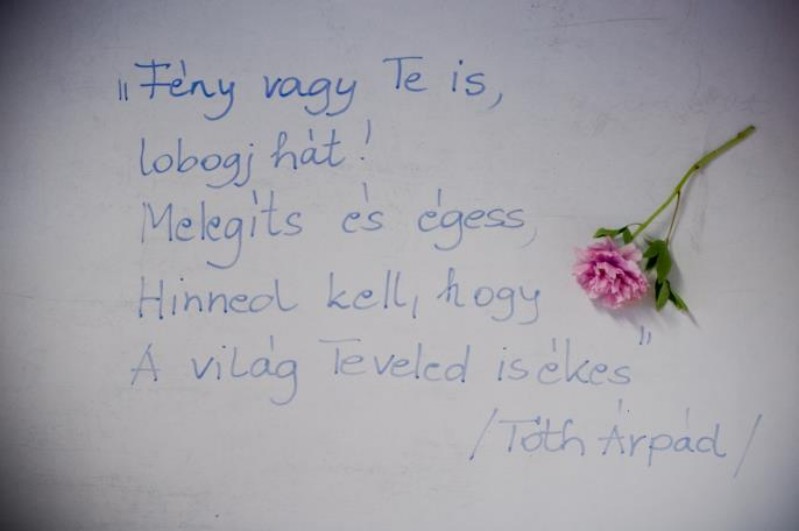 „Fény vagy Te is,
lobogj hát!
Melegíts és égess,
Hinned kell, hogy
A világ Teveled is ékes"
/Tóth Árpád/